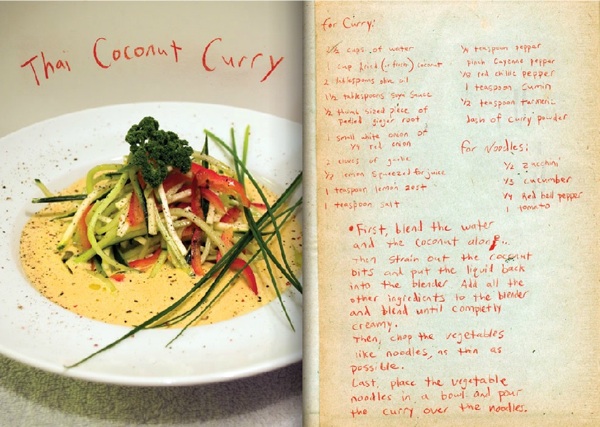 Thai Coconut Curry
for Curry:
2 ½ cups of water
1 cup dried (or fresh) coconut
2 tablespoons olive oil
1½ tablespoons soya sauce
½ thumb sized piece of
peeled ginger root
1 small white onion or
red onion
2 cloves of
½ lemon squeezed for juice
1 teaspoon lemon zest
1 teaspoon salt
teaspoon pepper
pinch Cayenne pepper
red chilli pepper
1 teaspoon Cumin
½ teaspoon turmeric
dash of curry powder
for Noodles:
½ zucchini
⅓ cucumber
¼ Red bell pepper
1 tomato
• First, blend the water
and the coconut alone.
Then strain out the coconut
bits and put the liquid back
into the blender Add all the
other ingredients to the blender
and blend until completly
creamy.
Then, chop the vegetables
like noodles, as thin as
possible.
Last, place the vegetable
noodles in a bowl and pour
the curry over the noodles.